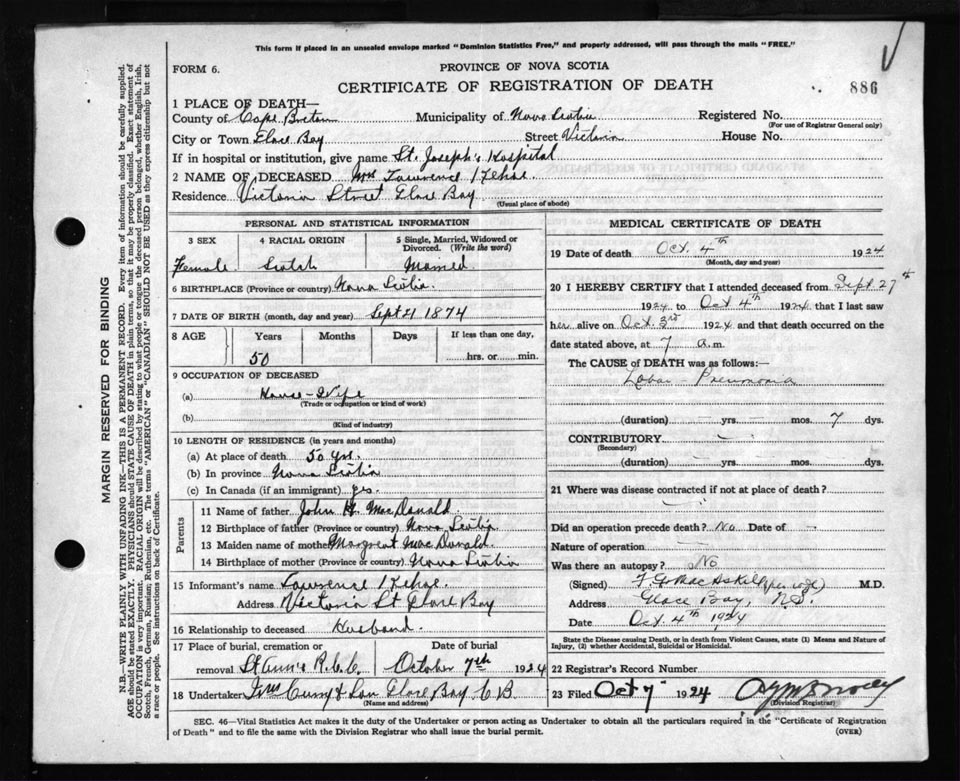 This form if placed in an unsealed envelope marked "Dominion Statistics Free," and properly addressed, will pass through the mails "FREE."
FORM 6.
PROVINCE OF NOVA SCOTIA
CERTIFICATE OF REGISTRATION OF DEATH
886
1 PLACE OF DEATH—
County of Cape Breton Municipality of Nova Scotia Registered No.
(For use of Registrar General only)
City or Town Glace Bay Street Victoria House No.
If in hospital or institution, give name St. Joseph's Hospital
2 NAME OF DECEASED Mrs Lawrence Kehoe.
Residence Victoria Street Glace Bay
(Usual place of abode)
PERSONAL AND STATISTICAL INFORMATION
3 SEX 4 RACIAL ORIGIN 5 Single, Married, Widowed or Divorced. (Write the word)
Female Scotch Married
6 BIRTHPLACE (Province or country) Nova Scotia
7 DATE OF BIRTH (month, day and year) Sept 21 1874
8 AGE Years Months Days If less than one day,
50 hrs. or min.
9 OCCUPATION OF DECEASED
(a) House-Wife
(Trade or occupation or kind of work)
(b)
(Kind of industry)
10 LENGTH OF RESIDENCE (in years and months)
(a) At place of death 50 yrs.
(b) In province Nova Scotia
(c) In Canada (if an immigrant) yes.
Parents
11 Name of father John H. MacDonald
12 Birthplace of father (Province or country) Nova Scotia
13 Maiden name of mother Margreat MacDonald.
14 Birthplace of mother (Province or country) Nova Scotia
15 Informant's name Lawrence Kehoe.
Address Victoria St Glace Bay
16 Relationship to deceased Husband.
17 Place of burial, cremation or Date of burial
removal St Ann's R.C.C. October 7th 1924
18 Undertaker & Son Glace Bay C B
(Name and address)
MEDICAL CERTIFICATE OF DEATH
19 Date of death Oct. 4th 1924
(Month, day and year)
20 I HEREBY CERTIFY that I attended deceased from Sept. 27th
1924 to Oct 4th 1924 that I last saw
her alive on Oct. 3rd 1924 and that death occurred on
date stated above, at 7 a.m.
The CAUSE of DEATH was as follows:—
Lobar - Pneumonia
(duration) — yrs. — mos. 7 dys.
CONTRIBUTORY —
(Secondary)
(duration) — yrs. — mos. dys.
21 Where was disease contracted if not at place of death?
—
Did an operation precede death? No Date of —
Nature of operation —
Was there an autopsy? No
(Signed) MacAskill M.D.
Address Glace Bay, N.S.
Date Oct 4th 1924
State the Disease causing Death, or in death from Violent Causes, state (1) Means and Nature of Injury, (2) whether Accidental, Suicidal or Homicidal.
22 Registrar's Record Number
23 Filed Oct 7 1924
(Division Registrar)
SEC. 46—Vital Statistics Act makes it the duty of the Undertaker or person acting as Undertaker to obtain all the particulars required in the "Certificate of Registration
of Death" and to file the same with the Division Registrar who shall issue the burial permit.
(OVER)
MARGIN RESERVED FOR BINDING
N.B.—WRITE PLAINLY WITH UNFADING INK—THIS IS A PERMANENT RECORD. Every item of information should be carefully supplied.
AGE should be stated EXACTLY. PHYSICIANS should STATE CAUSE OF DEATH in plain terms, so that it may be properly classified. Exact statement of
OCCUPATION is very important. RACIAL ORIGIN will be described by stating to what people or tongue the deceased person belonged, whether English, Irish,
Scotch, French, German, Russian, Ruthenian, etc. The terms "AMERICAN" or "CANADIAN" SHOULD NOT BE USED as they express citizenship but not
a race or people. See instructions on back of Certificate.